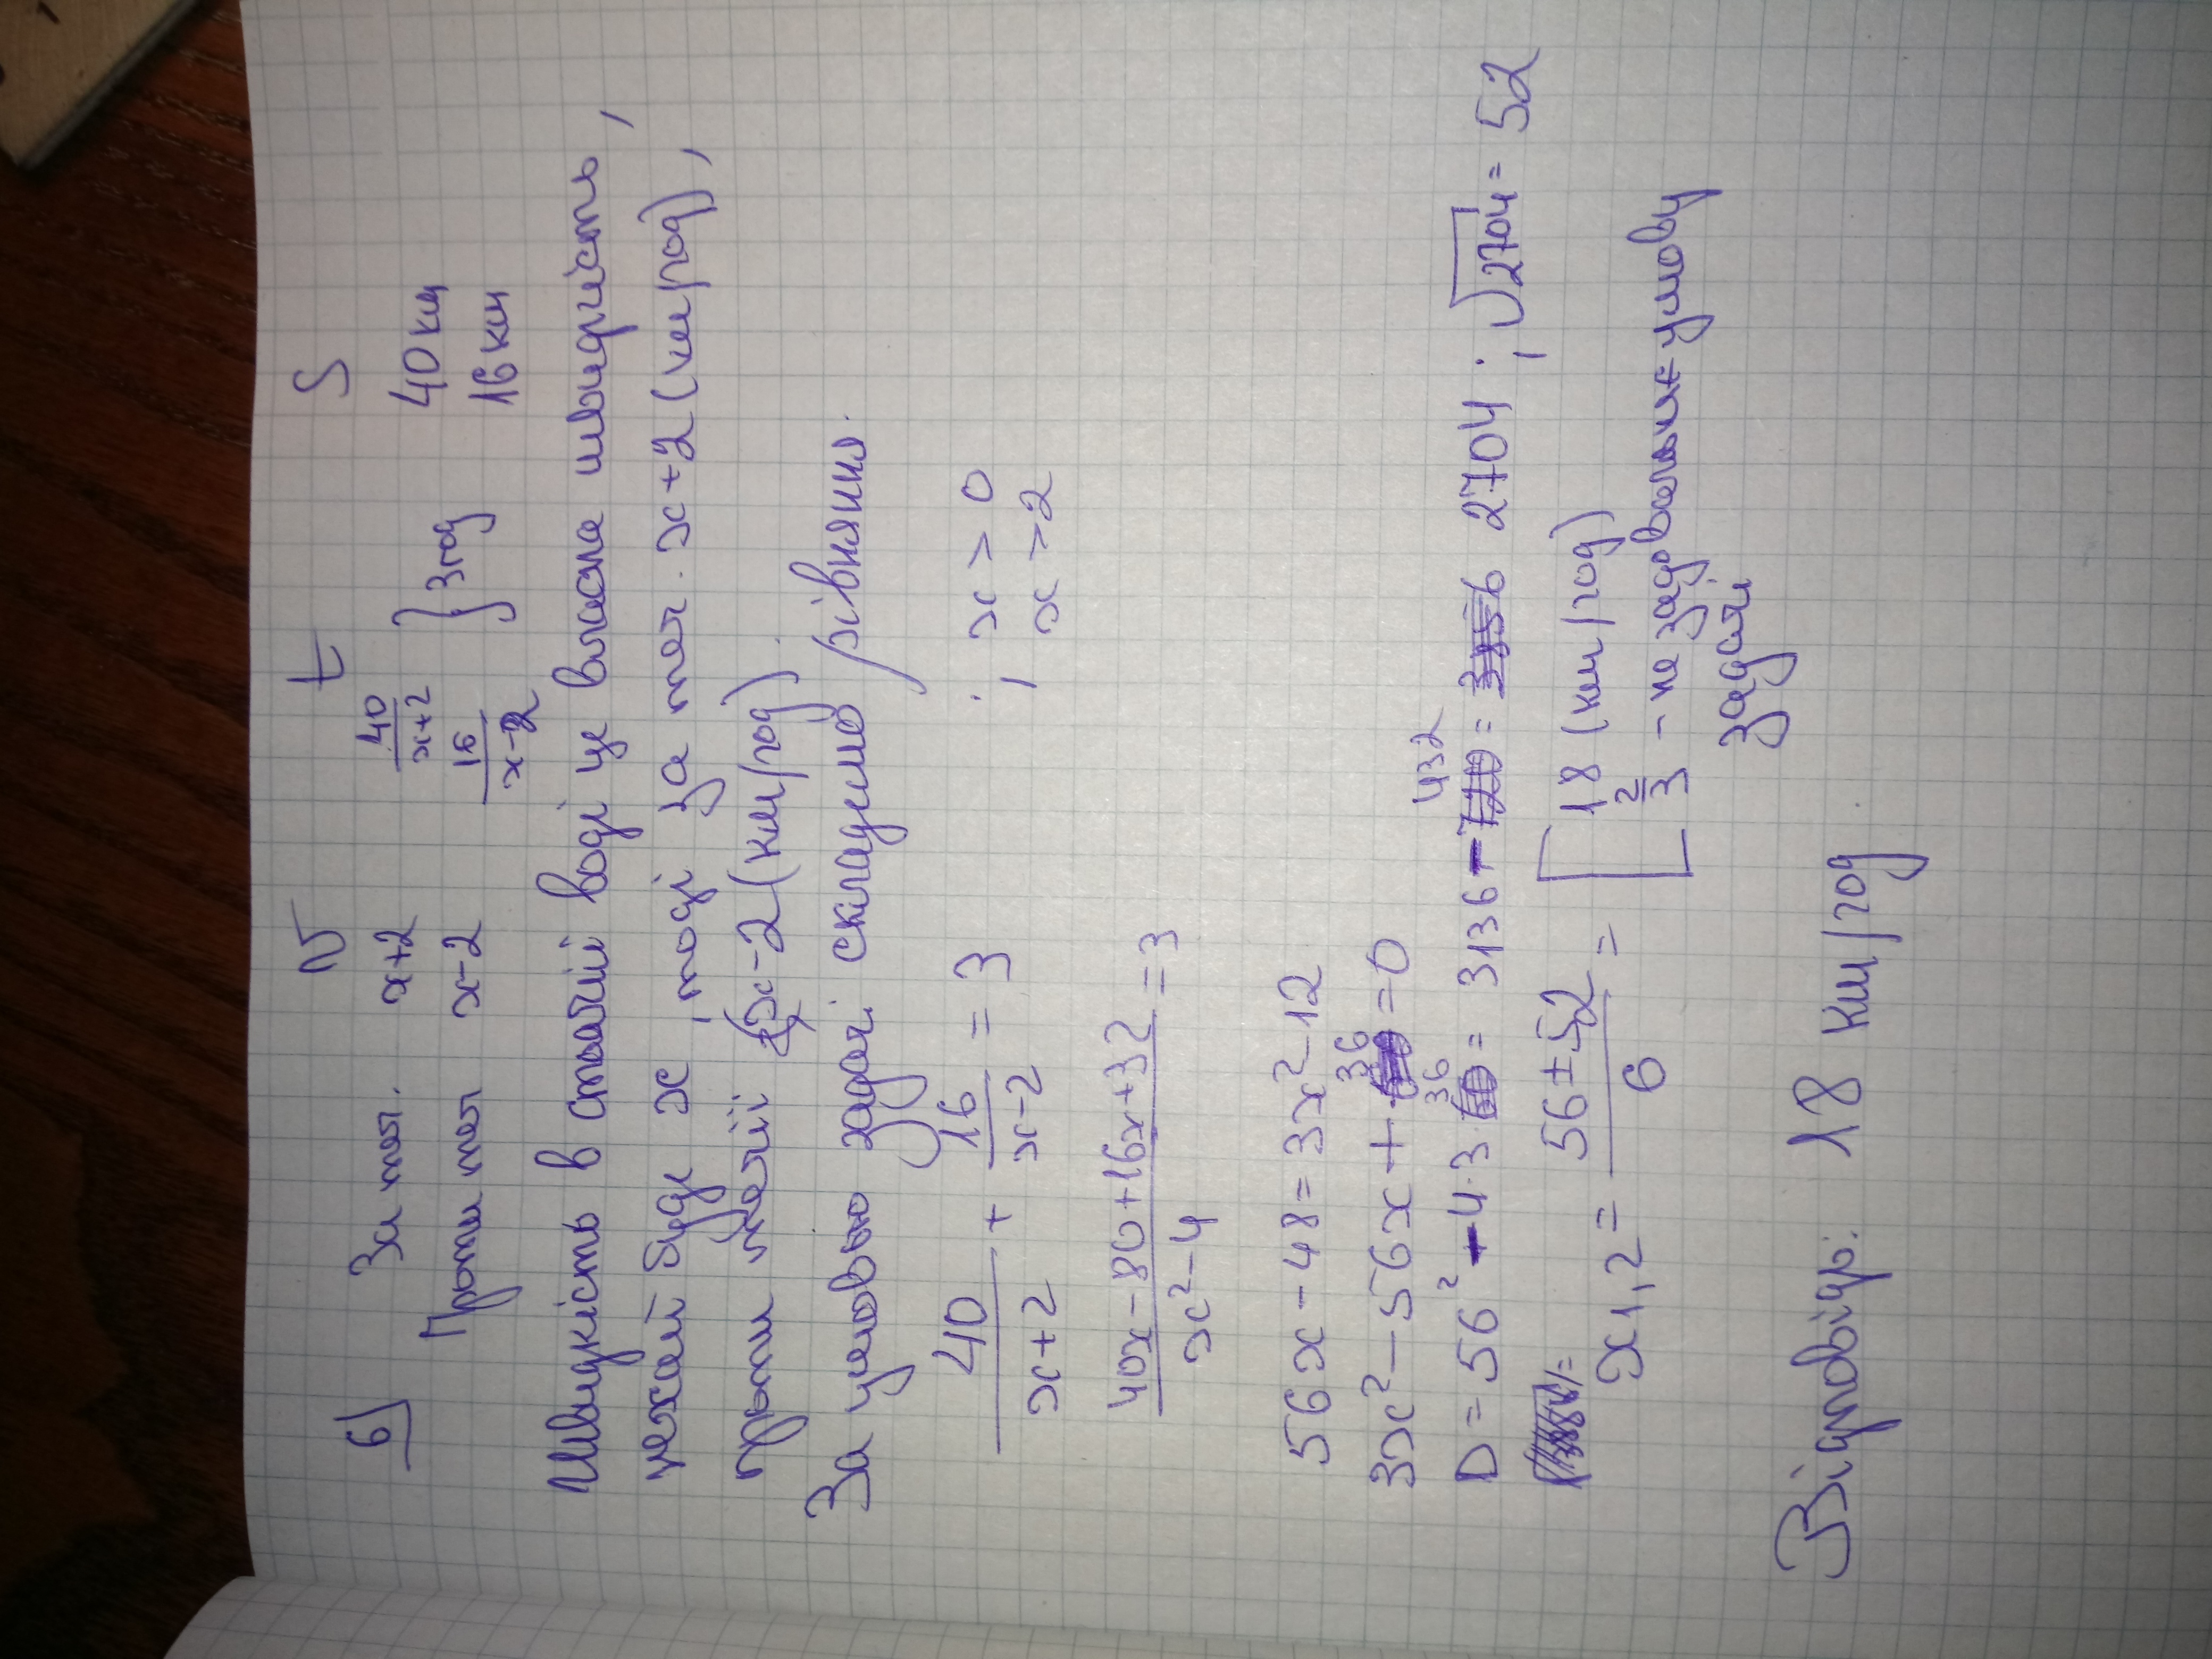 6) v t S
За теч. x+2 40/(x+2) } 3год 40 км
Проти теч x-2 16/(x-2) 16 км
Швидкість в стоячій воді це власна швидкість,
нехай буде x, тоді за теч. x+2 (км/год),
проти течії x-2 (км/год).
За умовою задачі складемо рівняння.
40/(x+2) + 16/(x-2) = 3 ; x > 0
x > 2
(40x-80+16x+32)/(x²-4) = 3
56x-48=3x²-12
3x²-56x+36=0
D=56²-4·3·36=3136-432= 2704; √2704=52
x1,2= (56±52)/6 = [ 18 (км/год)
2/3 - не задовольняє умову
задачі
Відповідь: 18 км/год